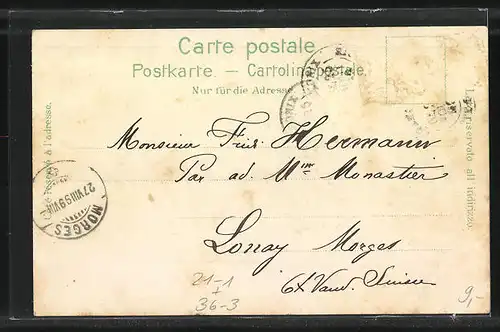 Carte postale.
Postkarte. — Cartolina postale.
Nur für die Adresse.
Côté réservé à l'adresse.
Lato riservato all' indirizzo.
Monsieur Hermann
Par ad. Mme Monastier
Lonay Morges
Ct Vaud. Suisse
MORGES
27 VIII 99 VIII
21-1
36-3
9,-